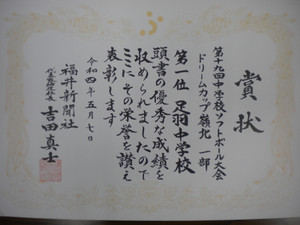 賞状
第十九回中学校ソフトボール大会
ドリームカップ嶺北 一部
第一位 足羽中学校
頭書の優秀な成績を
収められましたので
ここにその栄誉を讃え
表彰します
令和四年五月七日
福井新聞社
代表取締役社長 吉田真士